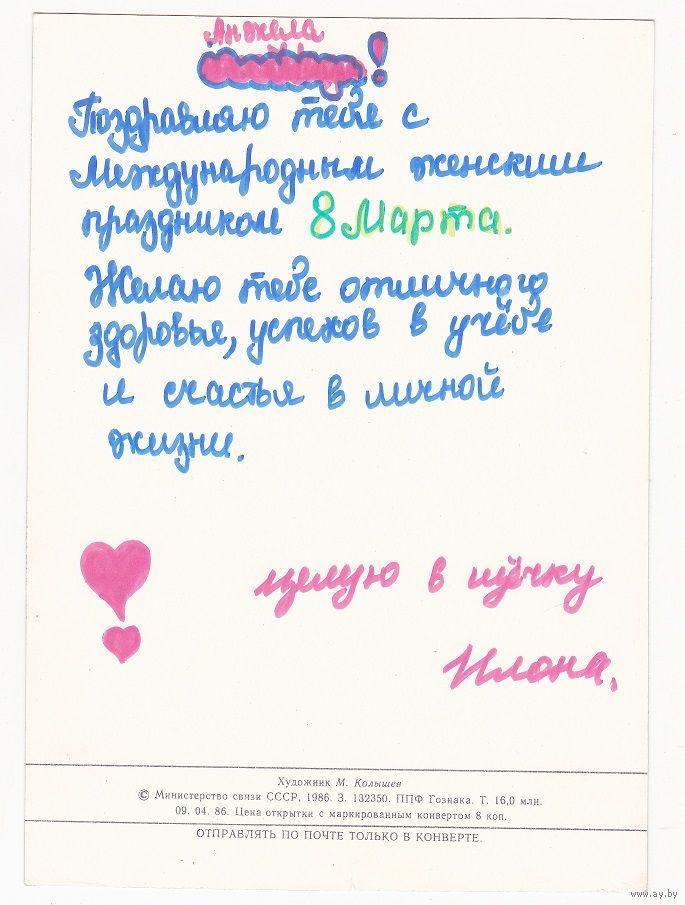 Анжела
!
Поздравляю тебя с
Международным женским
праздником 8 Марта.
Желаю тебе отличного
здоровья, успехов в учёбе
и счастья в личной
жизни.
целую в щёчку
Илона.
Художник М. Колышев
© Министерство связи СССР, 1986. З. 132350. ППФ Гознака. Т. 16,0 млн.
09. 04. 86. Цена открытки с маркированным конвертом 8 коп.
ОТПРАВЛЯТЬ ПО ПОЧТЕ ТОЛЬКО В КОНВЕРТЕ.
www.ay.by